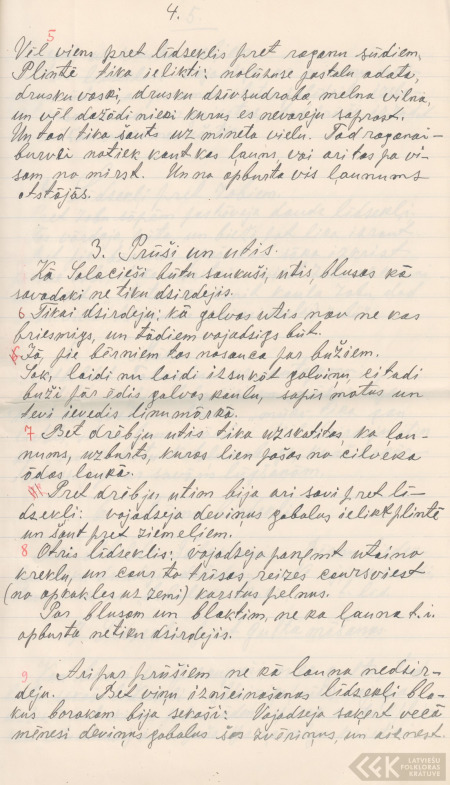 4. 5.
5
Vēl viens pret līdzeklis pret raganu šūdiem.
Plintē tika ielikti: nolūzuse pastalu adata,
drusku vaski, drusku dzīvsudraba, melna vilna,
un vēl dažādi nieki kurus es nevareju saprast.
Un tad tika šauts uz mineta vielu. Tad raganai-
burvei notiek kaut kas ļauns, vai ari tas pa vi-
sam no mirst. Un no apburta vis ļaunums
Atstājās.
3. Prūši un utis.
Kā Salacieši būtu saukuši, utis, blusas kā
savadaki ne tiku dzirdejis.
6 Tikai dzirdeju, kā galvas utis nav ne kas
briesmigs, un tādiem vajadzigs būt.
Jā, pie bērniem tas nosauca par bužiem.
Sak, laidi nu laidi izsukāt galviņu, citadi
buži pār ēdis galvas kaulu, sapīs matus un
tevi ievedis linumārkā.
7 Bet drēbju utis tika uzskatitas, ka ļau-
nums, uzburts, kuras lien pašas no cilveka
ādas laukā.
Pret drēbju utim bija ari savi pret lī-
dzekli: vajadzeja deviņus gabalus ielikt plintē
un šaut pret ziemeļiem.
8 Otris līdzeklis: vajadzeja paņemt utaino
kreklu, un caur to trīsas reizes caursviest
(no apkakles uz zemi) karstus pelnus.
Par blusam un blaktim, ne ka ļauna t.i.
apburta netiku dzirdejis.
9 Ari par prūšiem ne kā ļauna nedzir-
deju. Bet viņu iznicinašanas līdzekli bla-
kus borakam bija sekaši: Vajadzeja saķert vecā
mēnesi deviņus gabalus šos zvēriņus, un aiznest
LATVIEŠU
FOLKLORAS
KRĀTUVE